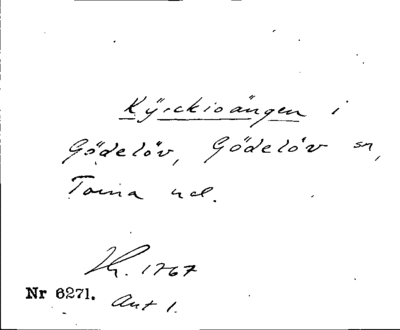 Kÿrckioängen i
Gödelöv, Gödelöv sn,
Torna hd.
1767
Nr 6271.
Akt 1.